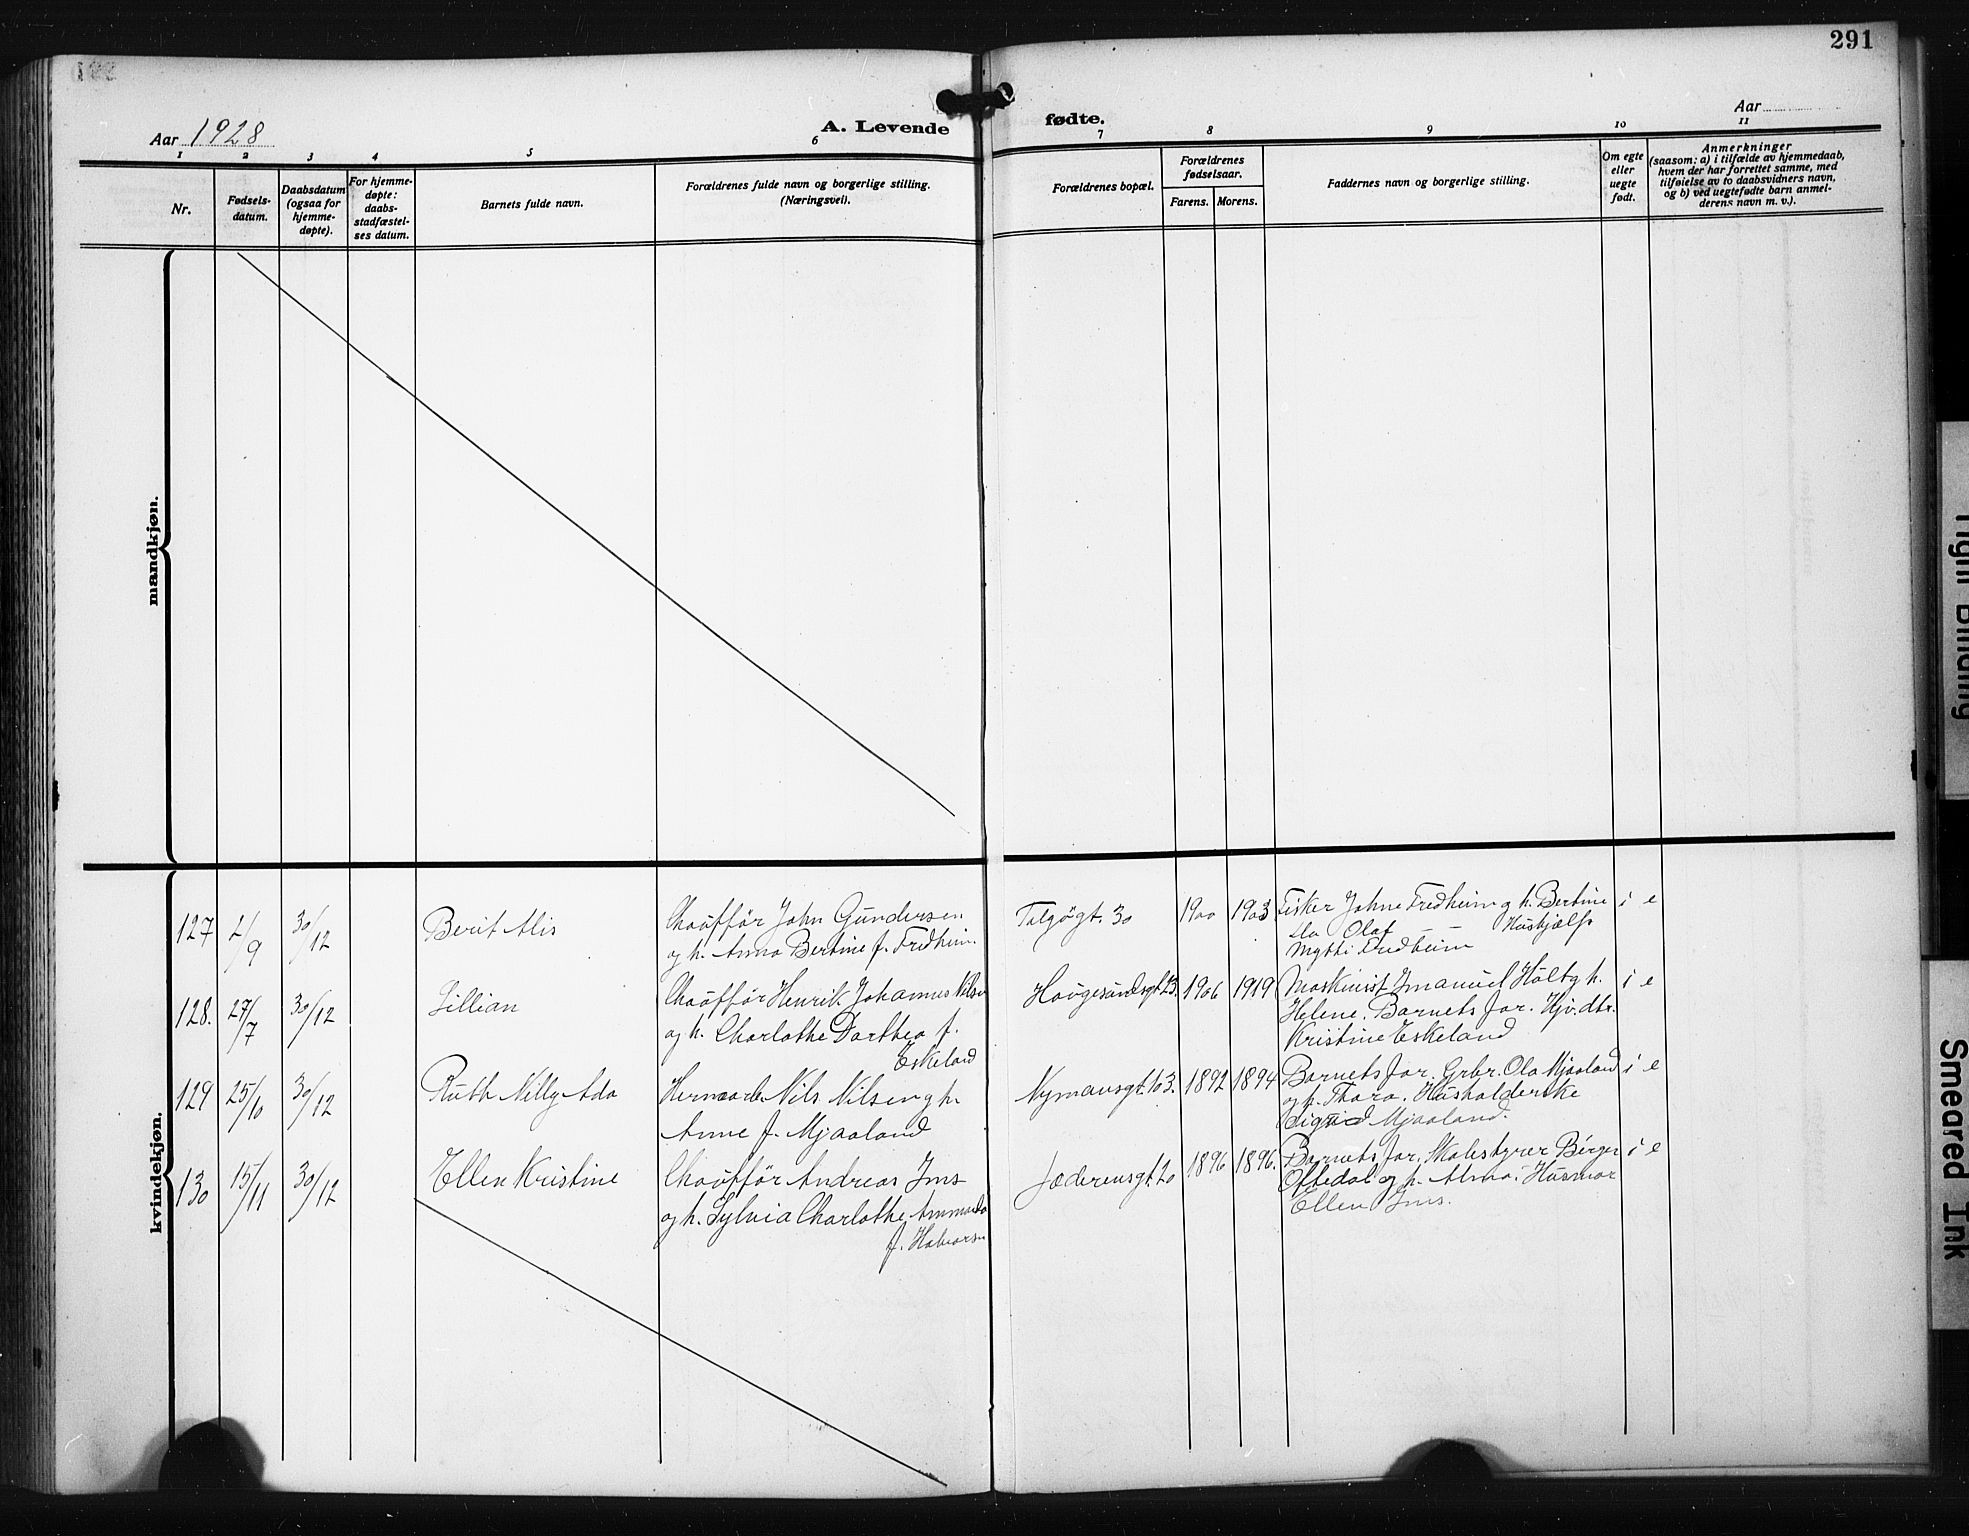 291
Aar 1928
A. Levende
fødte.
Aar
1 2 3 4 5 6 7 8 9 10 11
Nr.
Fødsels-
datum.
Daabsdatum
(ogsaa for
hjemme-
døpte).
For hjemme-
døpte:
daabs-
stadfæstel-
ses datum.
Barnets fulde navn.
Forældrenes fulde navn og borgerlige stilling.
(Næringsvei).
Forældrenes bopæl.
Forældrenes
fødselsaar.
Farens. Morens.
Faddernes navn og borgerlige stilling.
Om egte
eller
uegte
født.
Anmerkninger
(saasom: a) i tilfælde av hjemmedaab,
hvem der har forrettet samme, med
tilføielse av to daabsvidners navn,
og b) ved uegtefødte barn anmel-
derens navn m. v.).
mandkjøn.
kvindekjøn.
127 2/9 30/12 Berit Alis
Chauffør John Gundersen
og h. Anna Bertine f. Fredheim.
Talgøgt. 30 1900 1903
Fisker Johne Fredheim og h. Bertine
Olaf Hushjælp
Fredheim
i e
128. 27/7 30/12 Lillian
Chauffør Henrik Johannes Nilsen
og h. Charlothe Dorthea f.
Eskeland
Haugesundsgt. 23. 1906 1919
Maskinist Imanuel Hült og h.
Helene. Barnets far. Hjv. dtr.
Kristine Eskeland
i e
129 25/10 30/12 Ruth Nelly Ada
Nils Nilsen og h.
Anne f. Mjaaland
Nymansgt. 103. 1892 1894
Barnets far. Grbr. Ola Mjaaland
og h. Thora. Husholderske
Sigrid Mjaaland.
i e
130 15/11 30/12 Ellen Kristine
Chauffør Andreas Ims
og h. Sylvia Charlothe Ammanda
f. Halvorsen
Jæderensgt. 20 1896 1896.
Barnets far. Skolestyrer Børger
Oftedal og h. Alma. Husmor
Ellen Ims.
i e
Tight Binding
Smeared Ink